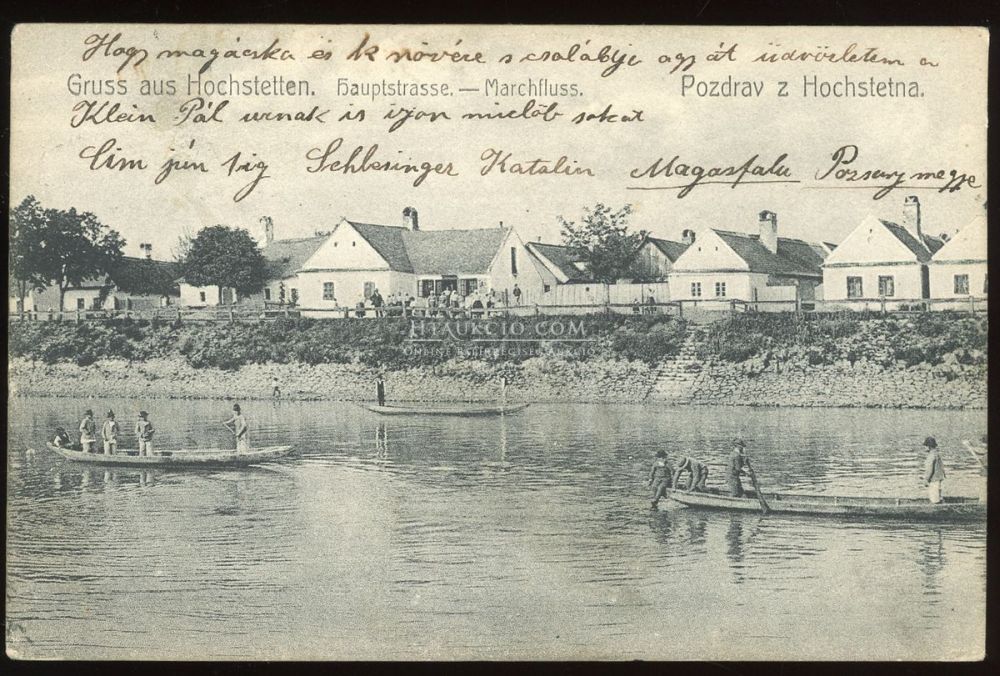 Hogy magácska és k növére s családja egy át üdvözletem a
Gruss aus Hochstetten. Hauptstrasse. — Marchfluss. Pozdrav z Hochstetna.
Klein Pál urnak is irjon mielöb sokat
Cim jún 1ig Schlesinger Katalin Magasfalu Pozsony megye
H1AUKCIO.COM